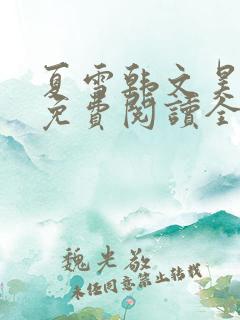 夏雪韩文昊
免費閱讀全
魏光敬
未经同意禁止转载